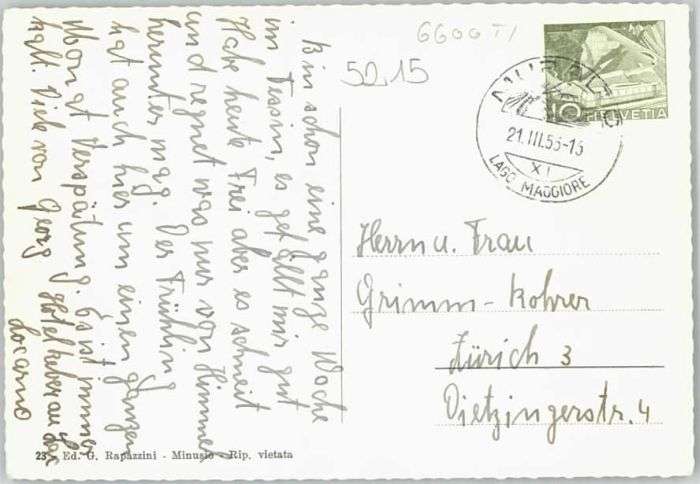 Bin schon eine ganze Woche
im Tessin, es gefällt mir gut
Habe heute frei aber es schneit
und regnet was nur von Himmel
herunter mag. Der Frühling
hat auch hier um einen ganzen
Monat Verspätung. Es ist immer
kalt. Viele von Georg
Locarno
6600 TI
50.15
10
HELVETIA
MURALTO
21.III.53-13
XI
LAGO MAGGIORE
Herrn u. Frau
Grimm-Kohrer
Zürich 3
Dietzingerstr. 4
23 - Ed. G. Rapazzini - Minusio - Rip. vietata